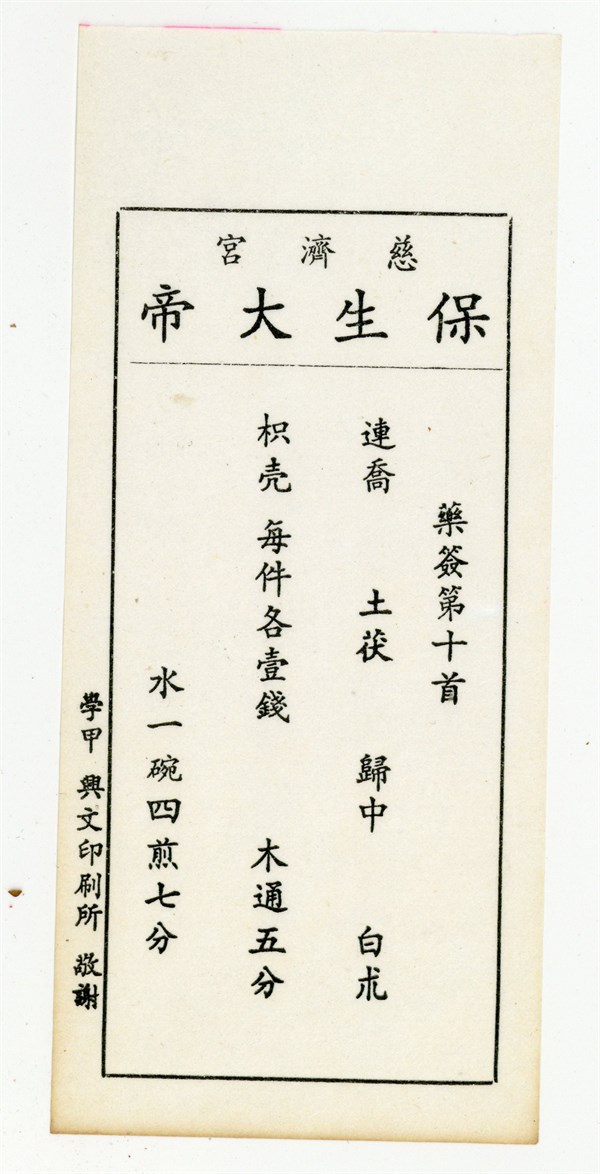 慈濟宮
保生大帝
藥簽第十首
連喬 土茯 歸中 白朮
枳壳 每件各壹錢 木通五分
水一碗四煎七分
學甲 興文印刷所 敬謝